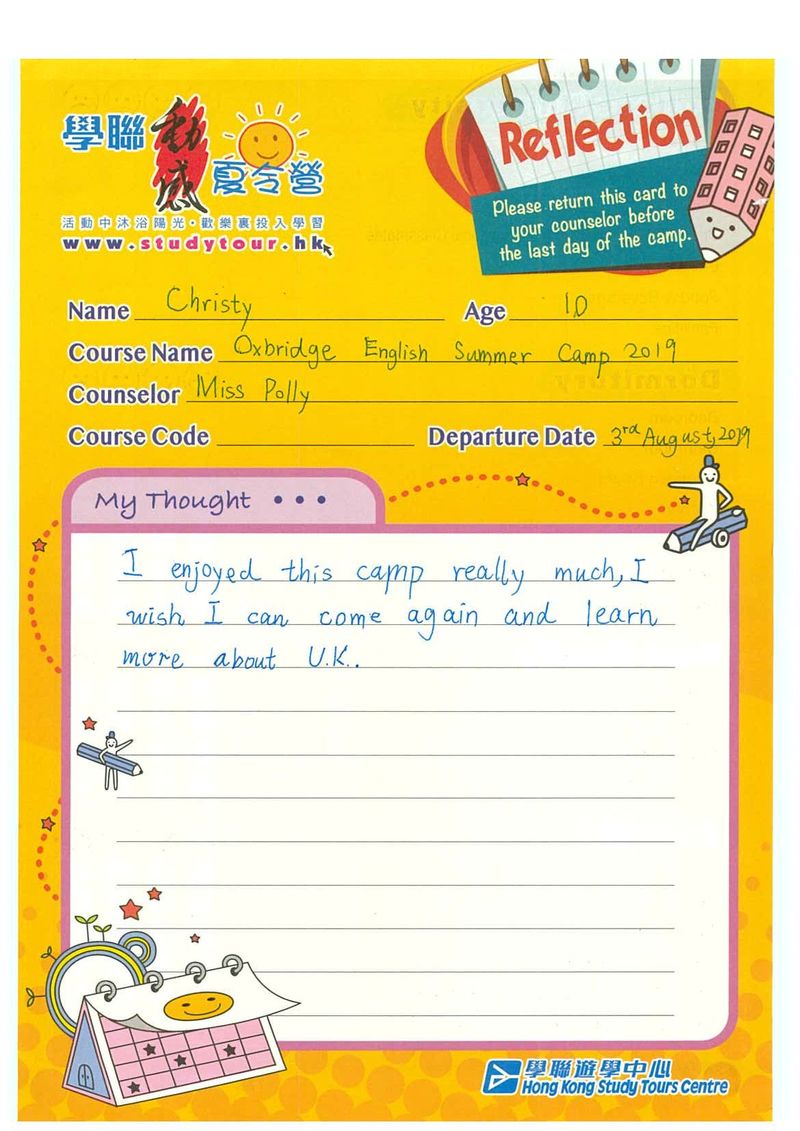 學聯動感夏令營
活動中沐浴陽光·歡樂裏投入學習
www.studytour.hk
Reflection
Please return this card to
your counselor before
the last day of the camp.
Name Christy Age 10
Course Name Oxbridge English Summer Camp 2019
Counselor Miss Polly
Course Code Departure Date 3rd August, 2019
My Thought • • •
I enjoyed this camp really much, I
wish I can come again and learn
more about U.K..
學聯遊學中心
Hong Kong Study Tours Centre